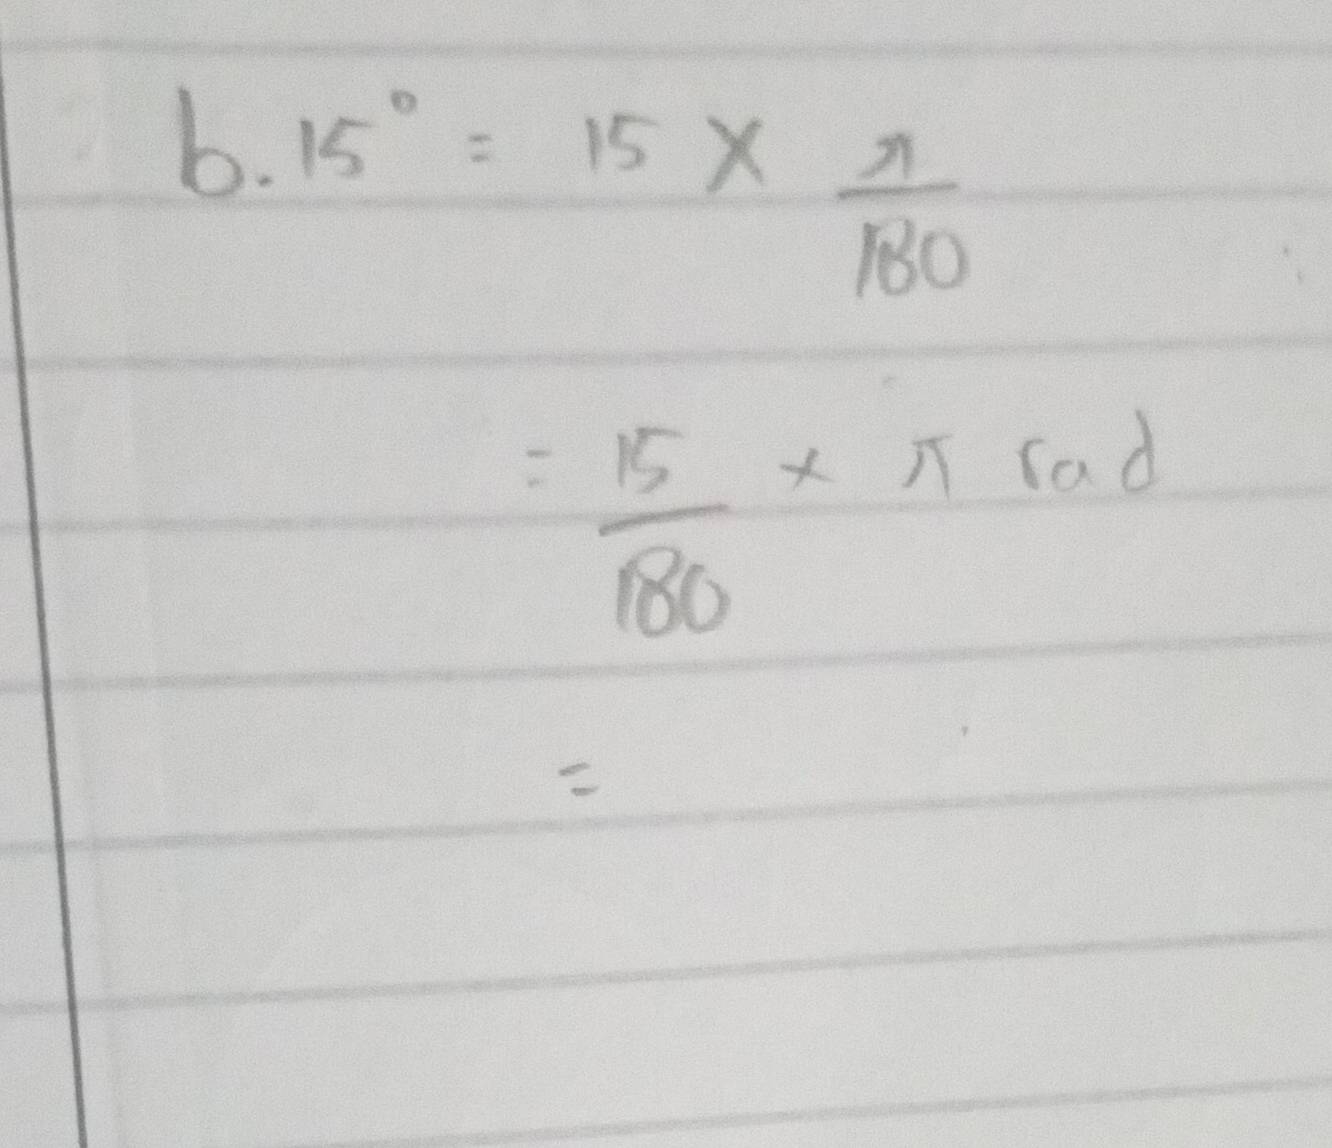 b. 15° = 15 × π/180
= 15/180 × π rad
=